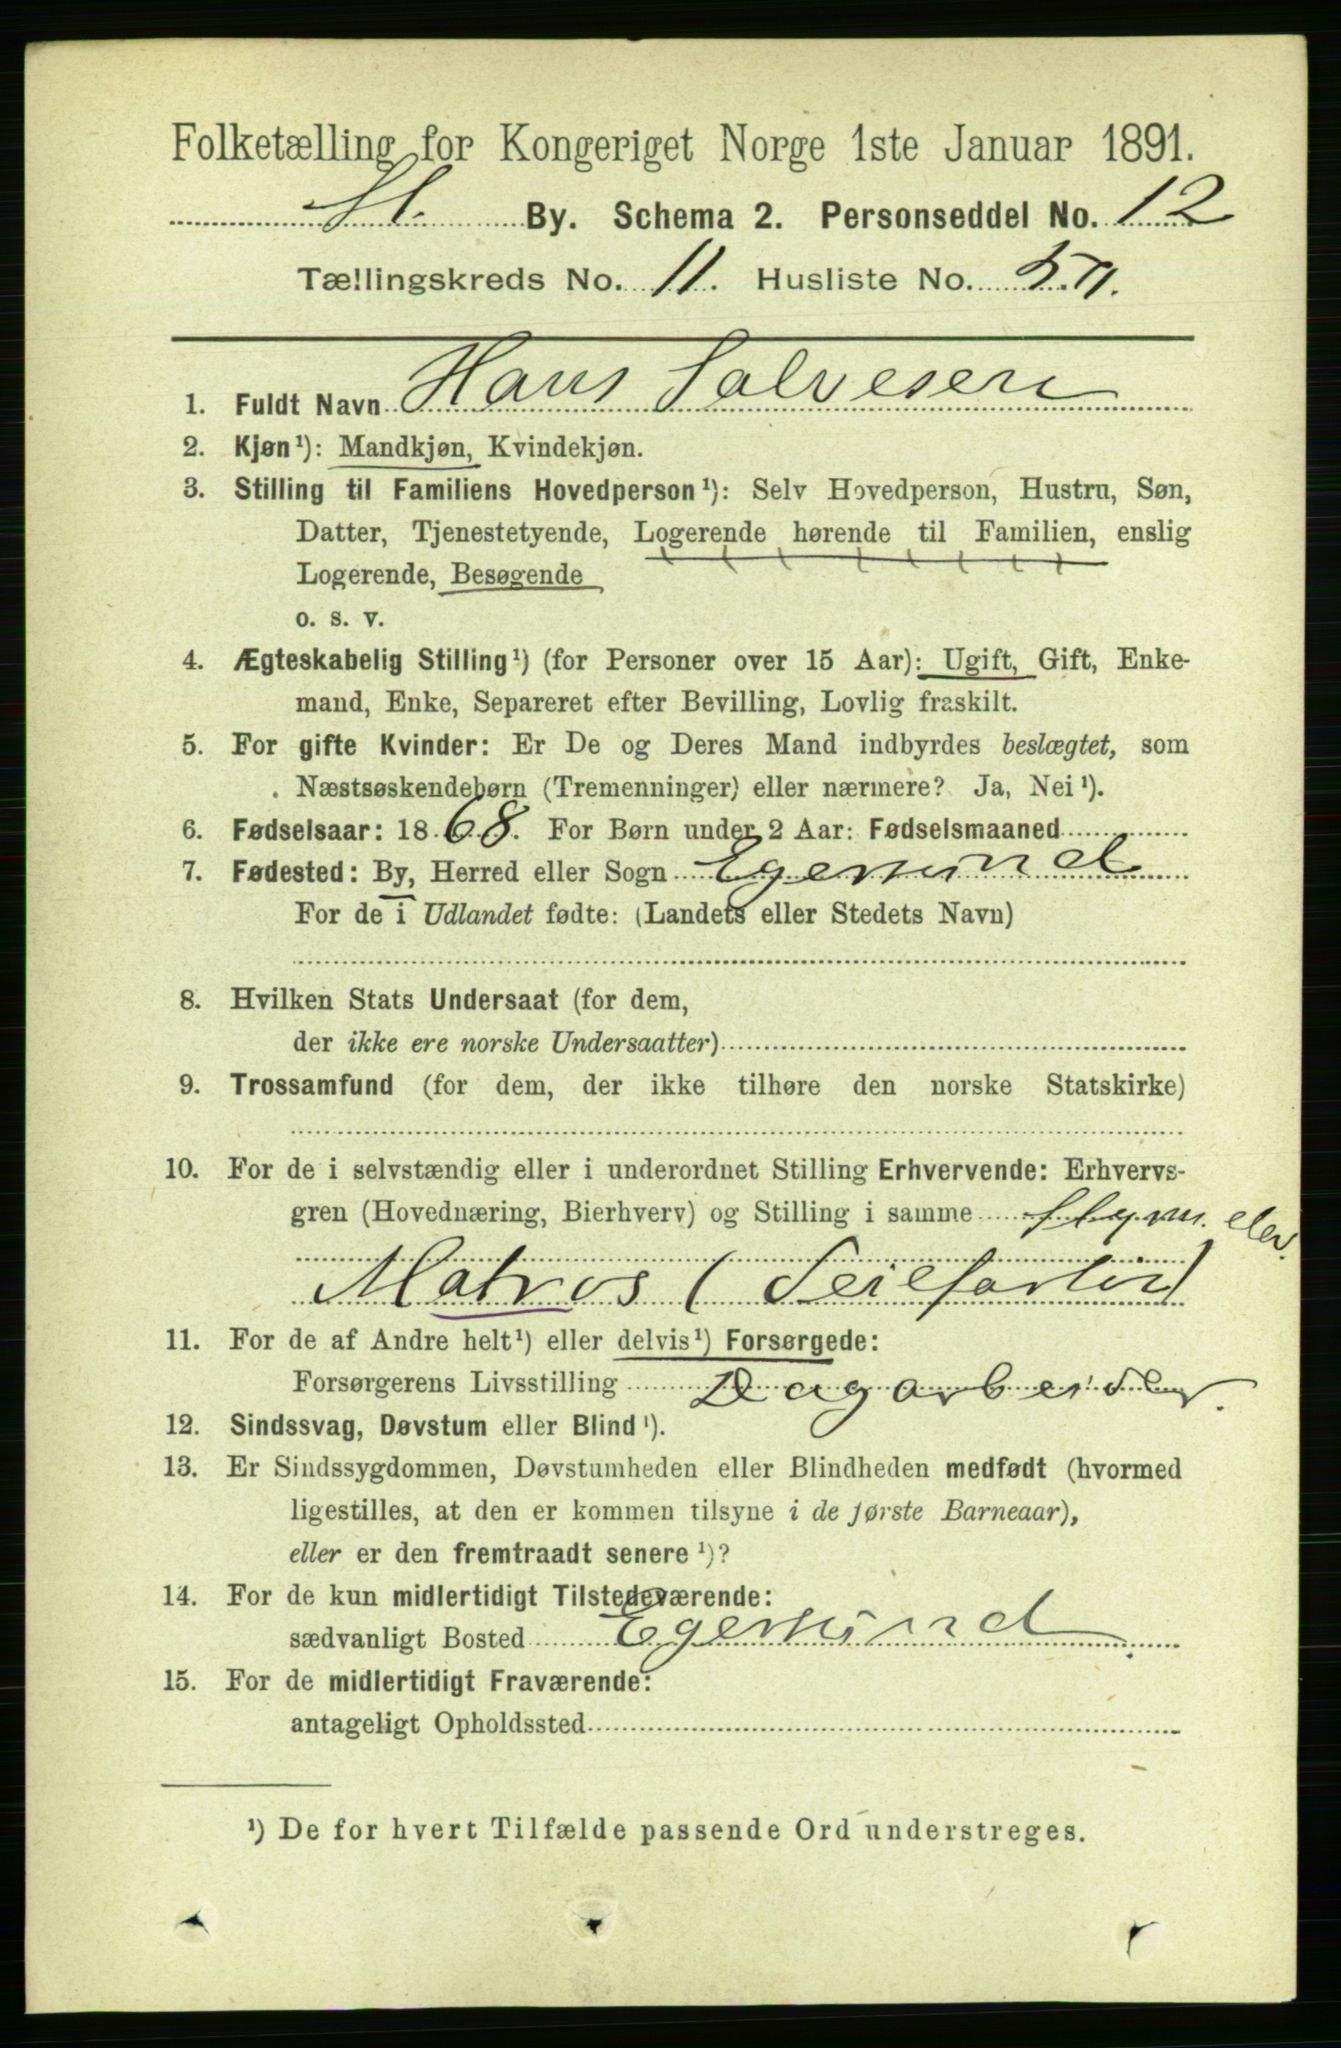 Folketælling for Kongeriget Norge 1ste Januar 1891.
St. By. Schema 2. Personseddel No. 12
Tællingskreds No. 11. Husliste No.
1. Fuldt Navn Hans Salvesen
2. Kjøn¹): Mandkjøn, Kvindekjøn.
3. Stilling til Familiens Hovedperson¹): Selv Hovedperson, Hustru, Søn,
Datter, Tjenestetyende, Logerende hørende til Familien, enslig
Logerende, Besøgende
o. s. v.
4. Ægteskabelig Stilling¹) (for Personer over 15 Aar): Ugift, Gift, Enke-
mand, Enke, Separeret efter Bevilling, Lovlig fraskilt.
5. For gifte Kvinder: Er De og Deres Mand indbyrdes beslægtet, som
Næstsøskendebørn (Tremenninger) eller nærmere? Ja, Nei¹).
6. Fødselsaar: 1868. For Børn under 2 Aar: Fødselsmaaned
7. Fødested: By, Herred eller Sogn Egersund
For de i Udlandet fødte: (Landets eller Stedets Navn)
8. Hvilken Stats Undersaat (for dem,
der ikke ere norske Undersaatter)
9. Trossamfund (for dem, der ikke tilhøre den norske Statskirke)
10. For de i selvstændig eller i underordnet Stilling Erhvervende: Erhvervs-
gren (Hovednæring, Bierhverv) og Stilling i samme Styrm. elev.
Matros (Seilfartøi)
11. For de af Andre helt¹) eller delvis¹) Forsørgede:
Forsørgerens Livsstilling Dagarbeider.
12. Sindssvag, Døvstum eller Blind¹).
13. Er Sindssygdommen, Døvstumheden eller Blindheden medfødt (hvormed
ligestilles, at den er kommen tilsyne i de første Barneaar),
eller er den fremtraadt senere¹)?
14. For de kun midlertidigt Tilstedeværende:
sædvanligt Bosted Egersund.
15. For de midlertidigt Fraværende:
antageligt Opholdssted
¹) De for hvert Tilfælde passende Ord understreges.